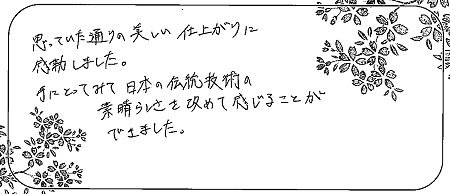 思っていた通りの美しい仕上がりに
感動しました。
手にとってみて日本の伝統技術の
素晴らしさを改めて感じることが
できました。